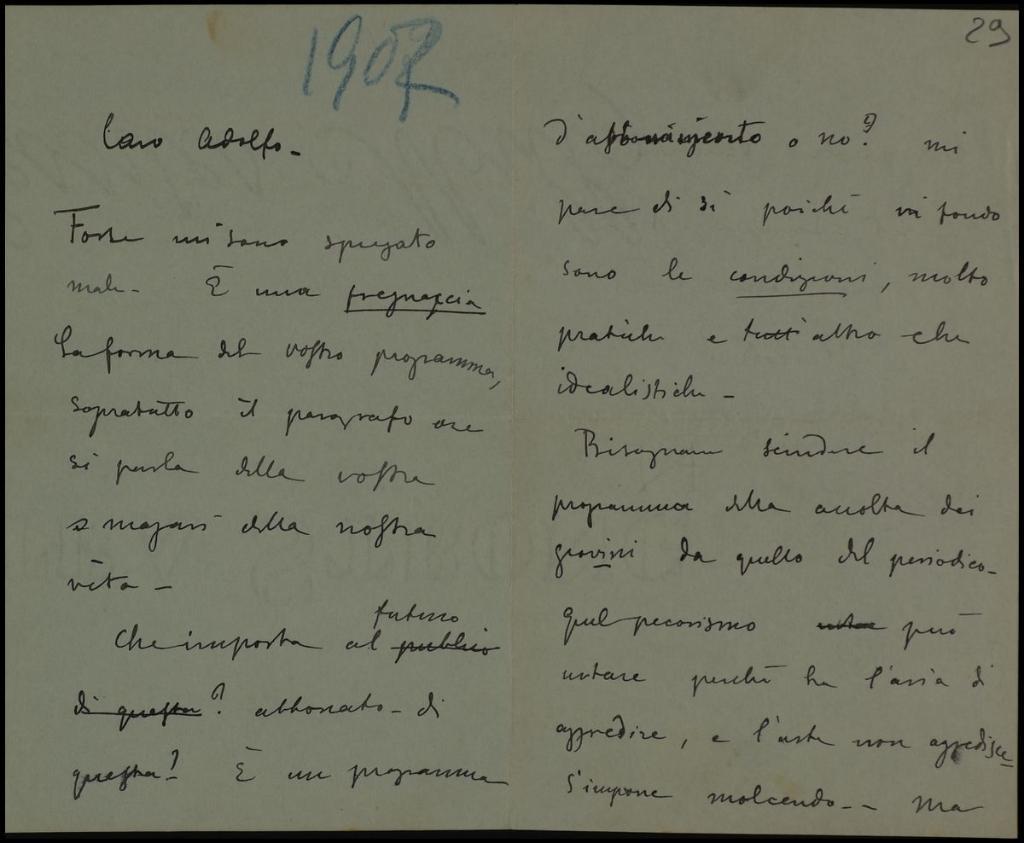 1907
29
Caro Adolfo -
Forse mi sono spiegato
male - È una fregnaccia
la forma del vostro programma,
sopratutto il paragrafo ove
si parla della vostra
e magari della nostra
vita -
Che importa al publico futuro
di questa? abbonato - di
questa? È un programma
d'abbonamento o no? mi
pare di sì poiché in fondo
sono le condizioni, molto
pratiche e tutt'altro che
idealistiche -
Bisognava scindere il
programma della accolta dei
giovini da quello del periodico -
Quel pecorismo può
urtare perché ha l'aria di
aggredire, e l'arte non aggredisce
s'impone molcendo - - Ma